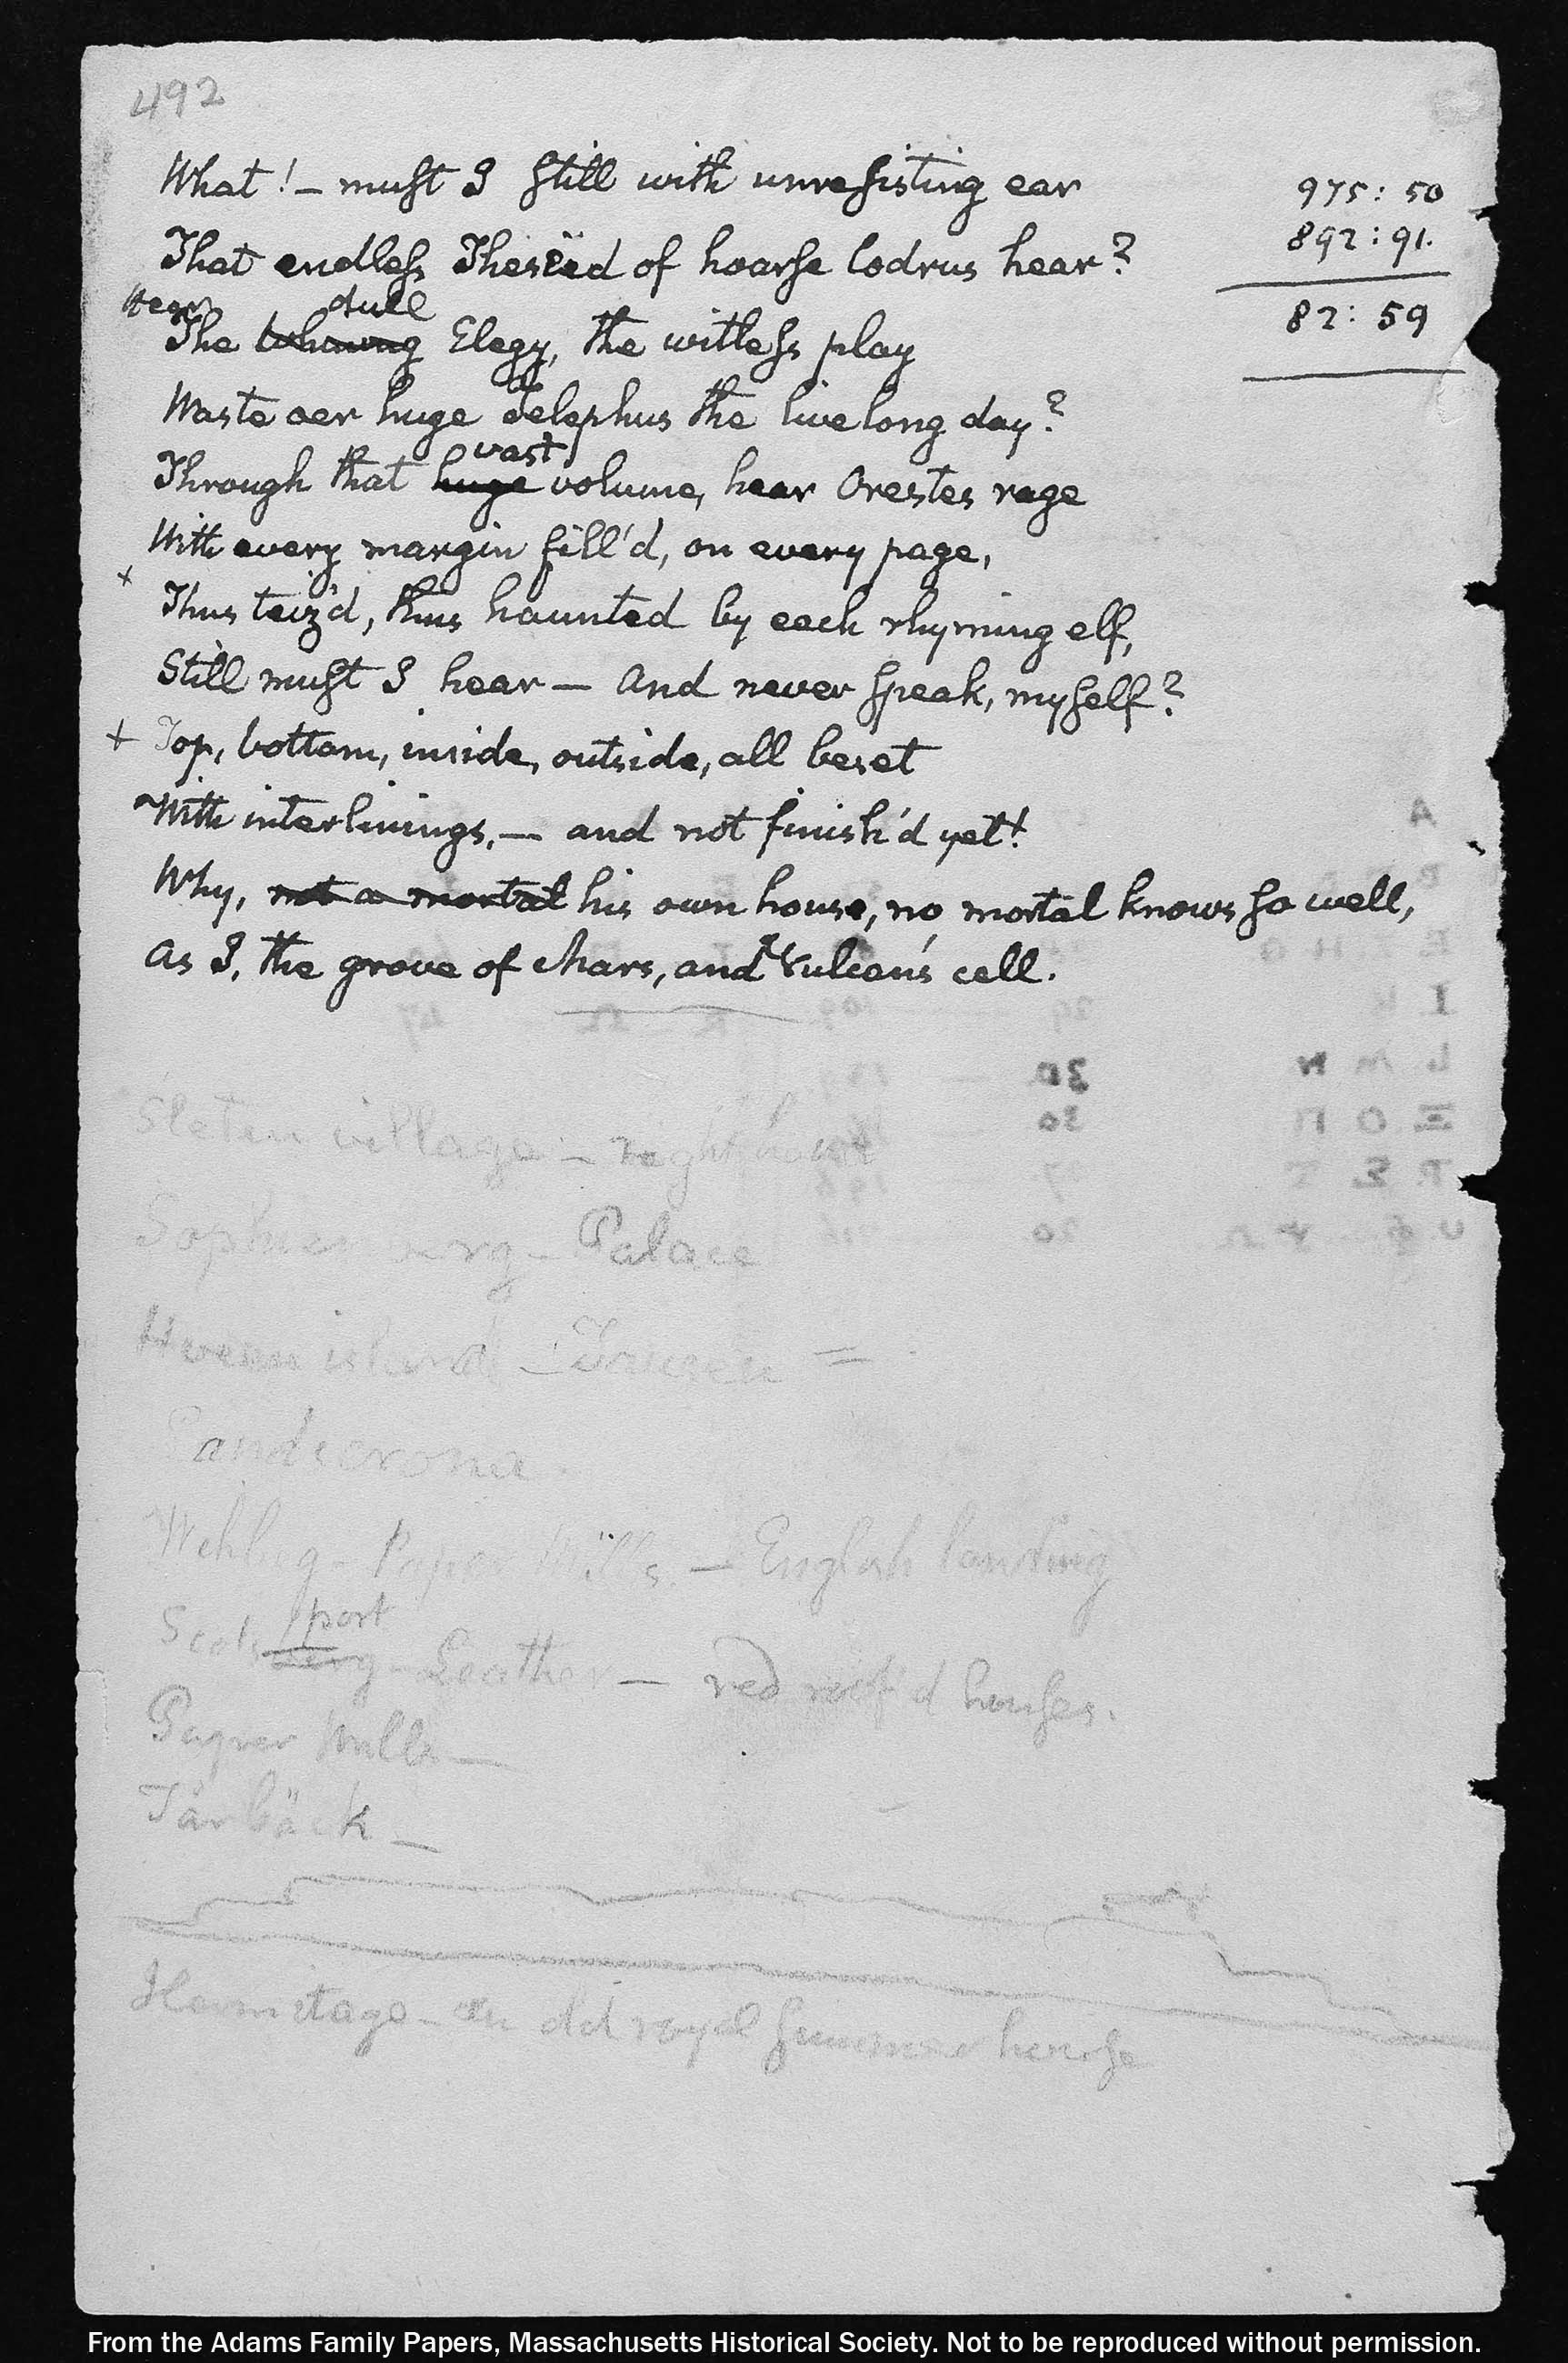 492
What! – must I still with unresisting ear
975: 50
That endless Theseïd of hoarse Codrus hear?
892: 91.
Hear dull
The whining Elegy, the witless play
82: 59
Waste oer huge Telephus the livelong day?
vast
Through that huge volume, hear Orestes rage
With every margin fill'd, on every page,
+
Thus teiz'd, thus haunted by each rhyming elf,
Still must I hear — and never speak, myself?
+ Top, bottom, inside, outside, all beset
With interlinings, — and not finish'd yet!
Why, not a mortal his own house, no mortal knows so well,
As I, the grove of Mars, and Vulcan's cell.
village – right hand
Palace
island –
Paper Mills. – English landing
port
Leather – red roof'd houses.
Paper Mills —
Tarbäck –
Hermitage – an old royal summer house
From the Adams Family Papers, Massachusetts Historical Society. Not to be reproduced without permission.